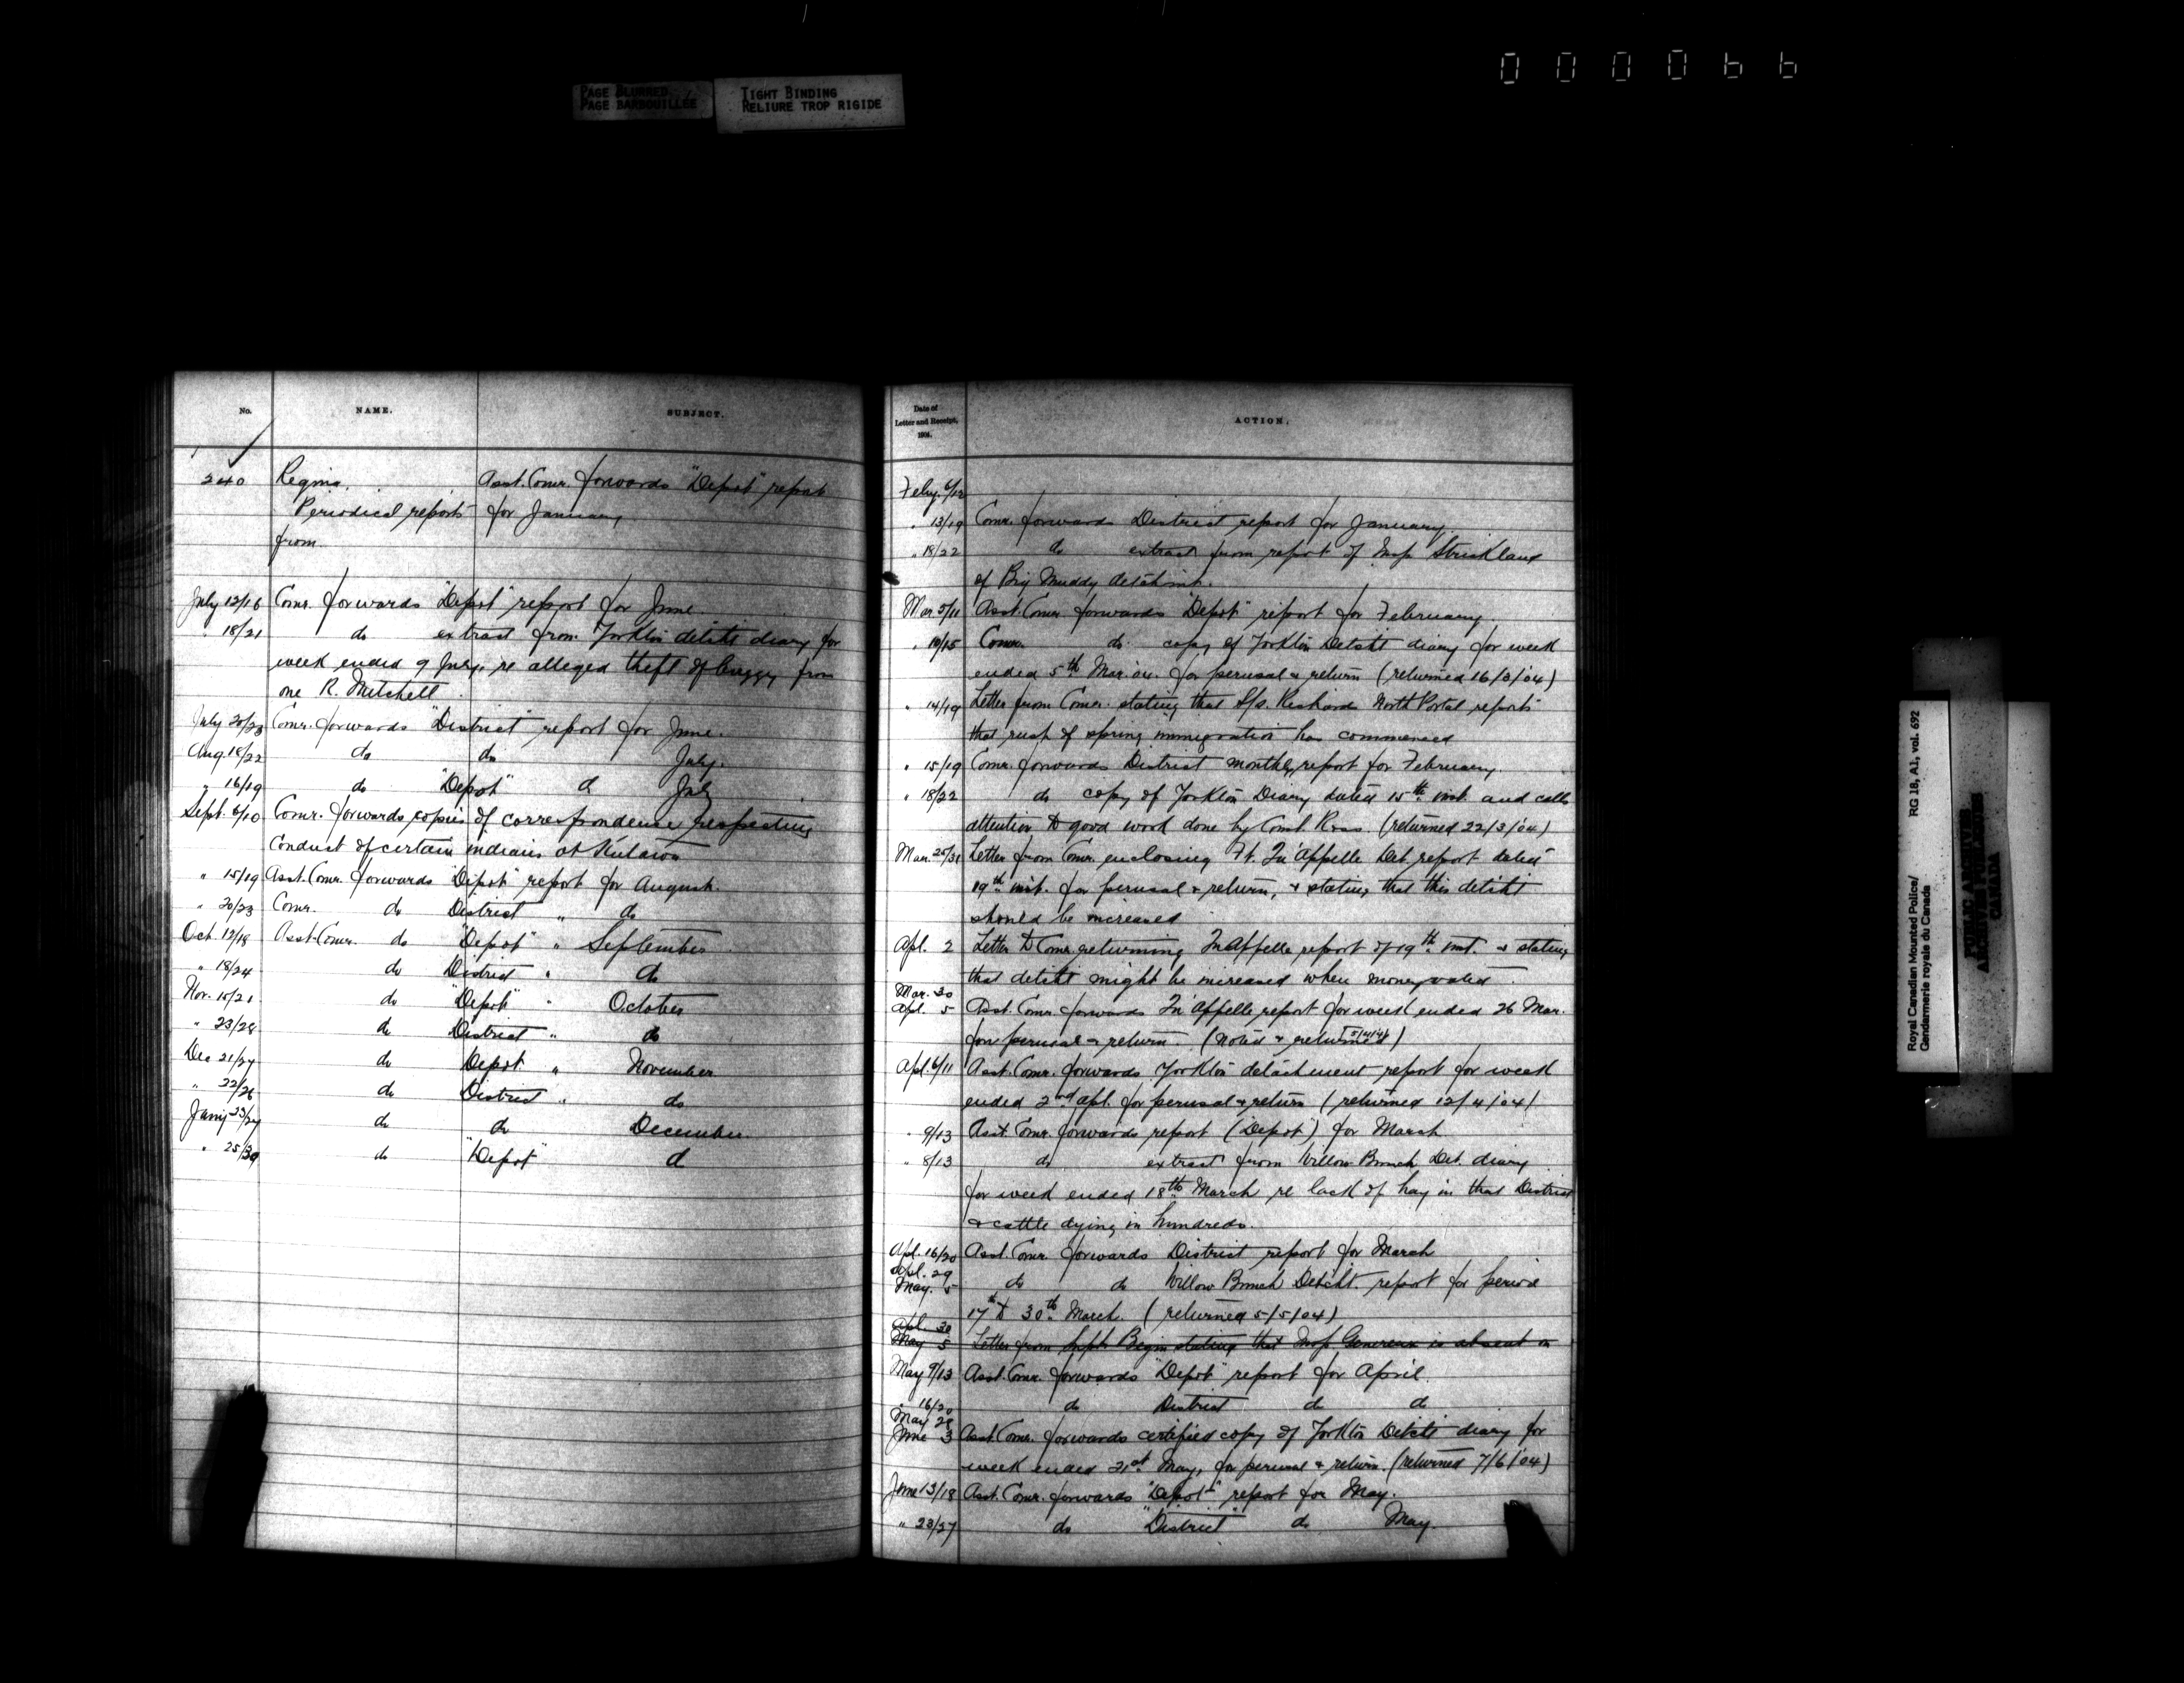 0 0 0 0 6 6
PAGE BLURRED
PAGE BARBOUILLÉE
TIGHT BINDING
RELIURE TROP RIGIDE
No. NAME. SUBJECT.
240 Regina. Asst. Comr. forwards "Depot" report
Periodical reports for January
from
July 12/16 Comr. forwards "Depot" report for June.
" 18/21 do extract from Yorkton detcht diary for
week ended 9 July, re alleged theft of buggy from
one R. Mitchell.
July 20/23 Comr. forwards "District" report for June.
Aug. 18/22 do do July.
" 16/19 do "Depot" d July
Sept. 6/10 Comr. forwards copies of correspondence respecting
Conduct of certain indians at
" 15/19 Asst. Comr. forwards "Depot" report for August.
" 20/23 Comr. do District " do
Oct. 12/18 Asst. Comr. do "Depot" " September
" 18/24 do District " do
Nov. 15/21 do "Depot" " October
" 23/28 do District " do
Dec 21/27 do Depot " November
" 22/26 do District " do
Jany 23/27 do do December.
" 25/30 do "Depot" d
Date of
Letter and Receipt,
1904.
ACTION.
Feby. 6/12
" 13/19 Comr. forwards District report for January.
" 18/22 do extract from report of Insp Strickland
of Big Muddy detchmt.
Mar. 5/11 Asst. Comr forwards "Depot" report for February
" 10/15 Comr. do copy of Yorkton Detcht diary for week
ended 5th Mar. 04. for perusal & return (returned 16/3/04)
" 14/19 Letter from Comr. stating that S/s. Richards North Portal reports
that rush of spring immigration has commenced
" 15/19 Comr. forwards District monthly report for February.
" 18/22 do copy of Yorkton Diary dated 15th inst. and calls
attention to good work done by Const. Ross. (returned 22/3/04)
Mar. 25/31 Letter from Comr. enclosing Ft. Qu'Appelle Det. report dated
19th inst. for perusal & return, & stating that this detcht
should be increased
Apl. 2 Letter to Comr. returning Qu'Appelle report of 19th inst. & stating
that detcht might be increased when money voted.
Mar. 30
Apl. 5 Asst. Comr. forwards Qu'Appelle report for week ended 26 Mar.
for perusal & return. (Noted & returned 5/4/4)
Apl. 6/11 Asst. Comr. forwards Yorkton detachment report for week
ended 2nd Apl. for perusal & return (returned 12/4/04)
" 9/13 Asst. Comr. forwards report (Depot) for March
" 8/13 do extract from Willow Bunch Det. diary
for week ended 18th March re lack of hay in that District
& cattle dying in hundreds.
Apl. 16/20 Asst. Comr. forwards District report for March
Apl. 29
May. 5 do do Willow Bunch Detcht. report for period
17th to 30th March. (returned 5/5/04)
Apl. 30
May 5 Letter from Supt. Begin stating that Insp Genereux is absent on
May 9/13 Asst. Comr. forwards "Depot" report for April.
" 16/20 do District do do
May 28
June 3 Asst. Comr. forwards certified copy of Yorkton Detcht diary for
week ended 21st May, for perusal & return. (returned 7/6/04)
June 13/18 Asst. Comr. forwards "Depot" report for May.
" 23/27 do "District" do May.
Royal Canadian Mounted Police/ RG 18, A1, vol. 692
Gendarmerie royale du Canada
PUBLIC ARCHIVES
ARCHIVES PUBLIQUES
CANADA